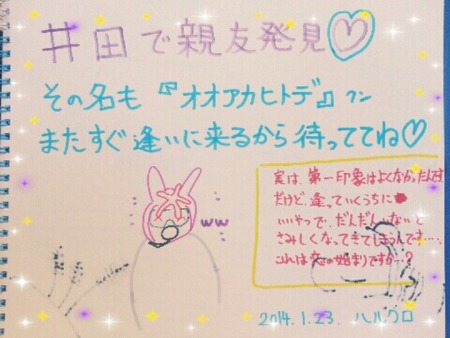 井田で親友発見♡
その名も『オオアカヒトデ』クン
またすぐ逢いに来るから待っててね♡
実は、第一印象はよくなかったんです
だけど、逢っていくうちに
いいやつで、だんだんいないと
さみしくなってきてしまうんです…。
これは恋の始まりですか…?
ww
2014.1.23. ハルクロ